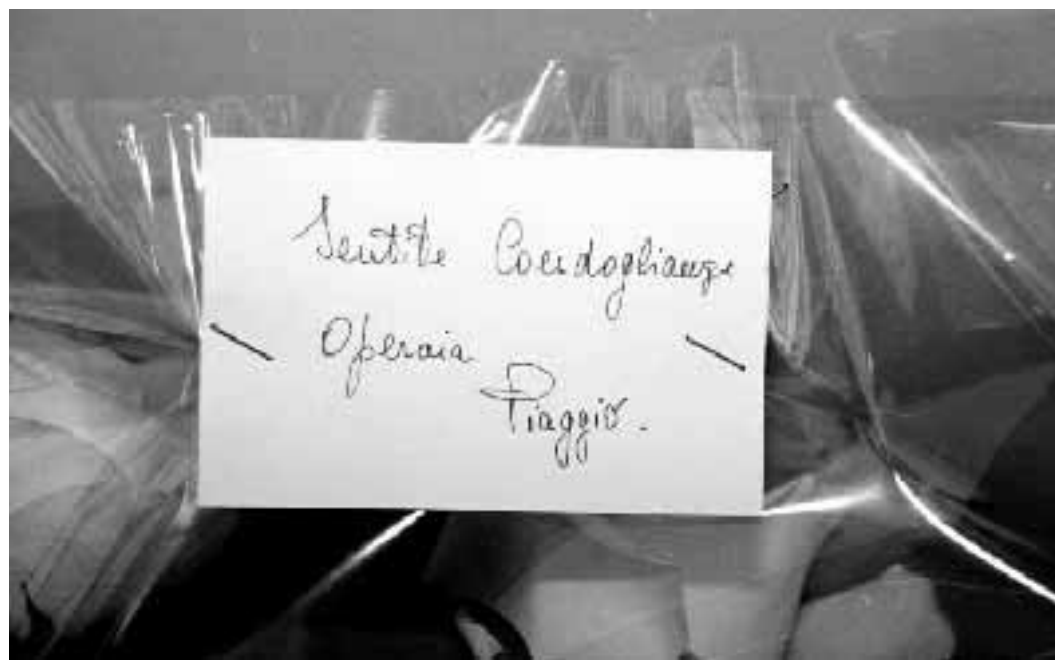 Sentite Condoglianze
Operaia
Piaggio.